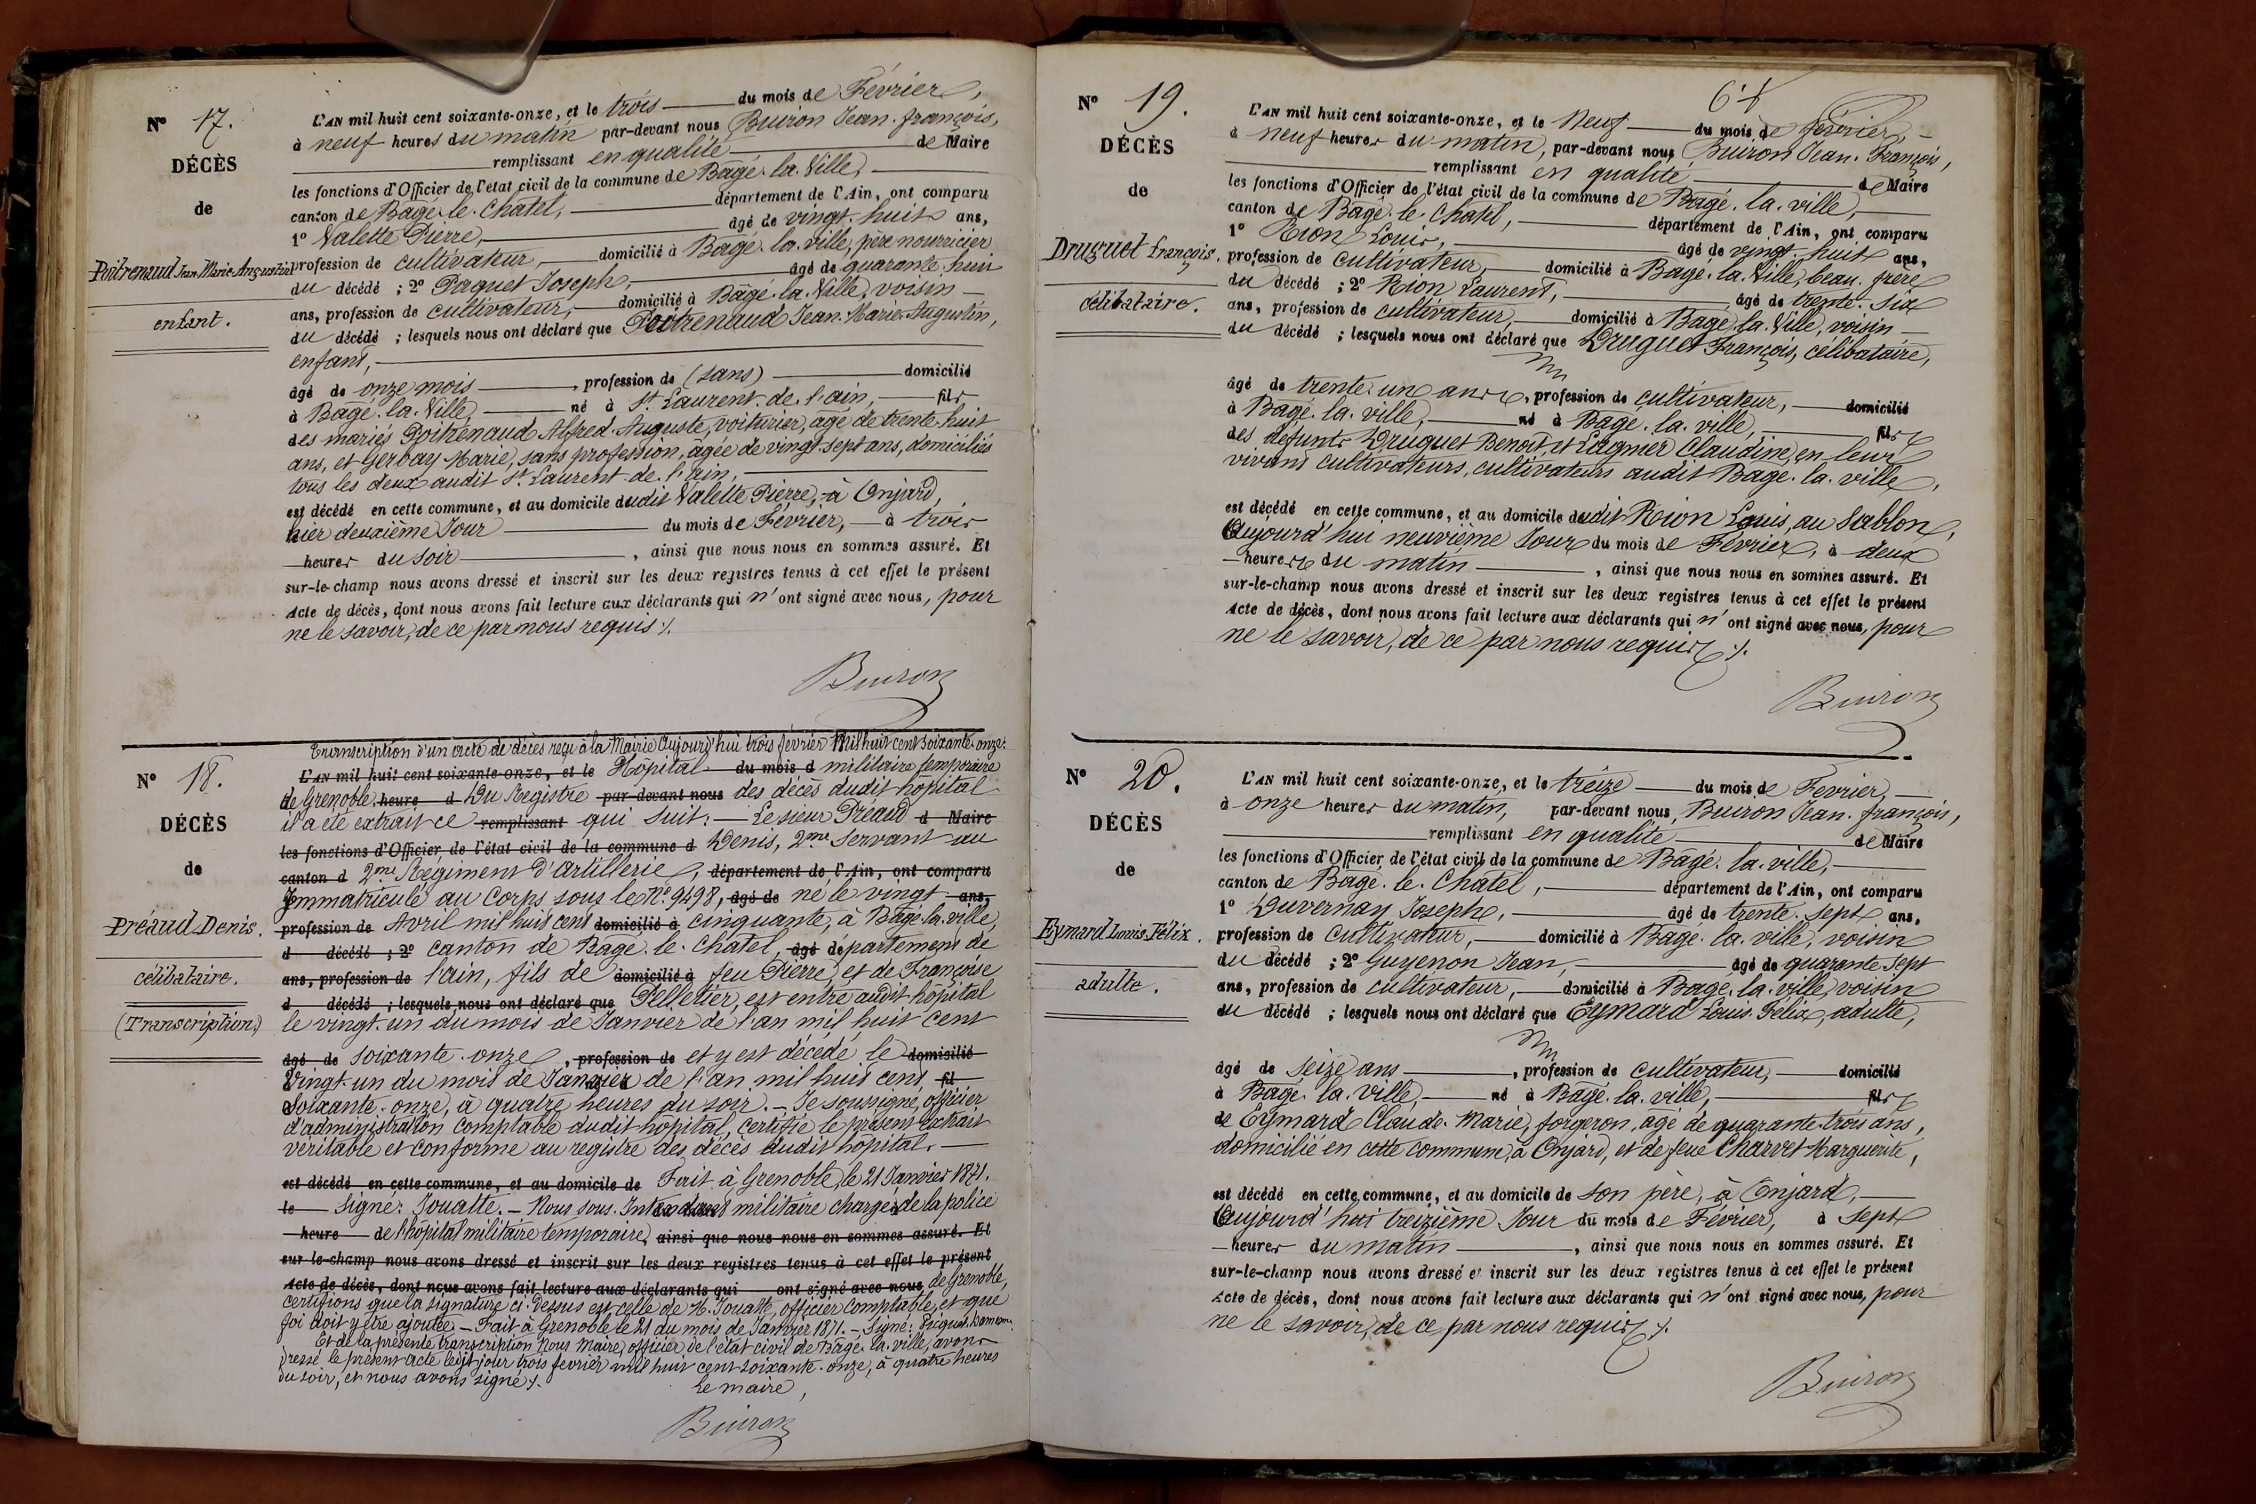 N° 17.
DÉCÈS
de
Poitrenaud Jean-Marie-Augustin
enfant.
L'AN mil huit cent soixante-onze, et le trois du mois de Février,
à neuf heures du matin par-devant nous Buiron Jean-françois,
remplissant en qualité de Maire
les fonctions d'Officier de l'état civil de la commune de Bâgé-la-Ville,
canton de Bâgé-le-Chatel, département de l'Ain, ont comparu
1° Valette Pierre, âgé de vingt-huit ans,
profession de cultivateur, domicilié à Bâgé-la-ville, père nourricier
du décédé ; 2° Paquet Joseph, âgé de quarante huit
ans, profession de cultivateur, domicilié à Bâgé-la-Ville, voisin
du décédé ; lesquels nous ont déclaré que Poitrenaud Jean-Marie-Augustin,
enfant,
âgé de onze mois, profession de (sans) domicilié
à Bâgé-la-Ville, né à St Laurent-de-l'ain, fils
des mariés Poitrenaud Alfred-Auguste, voiturier, âgé de trente-huit
ans, et Gerbay Marie, sans profession, âgée de vingt-sept ans, domiciliés
tous les deux audit St Laurent-de-l'ain,
est décédé en cette commune, et au domicile dudit Valette Pierre, à Onjard,
hier deuxième Jour du mois de Février, à trois
heures du soir, ainsi que nous nous en sommes assuré. Et
sur-le-champ nous avons dressé et inscrit sur les deux registres tenus à cet effet le présent
Acte de décès, dont nous avons fait lecture aux déclarants qui n'ont signé avec nous, pour
ne le savoir, de ce par nous requis ./.
Buiron
Transcription d'un acte de décès reçu à la Mairie Aujourd'hui trois février Mil huit cent soixante-onze.
N° 18.
DÉCÈS
de
Préaud Denis.
célibataire.
(Transcription)
L'AN mil huit cent soixante-onze, et le Hôpital du mois d militaire temporaire
de Grenoble. heure d Du Registre par-devant nous des décès dudit hôpital
il a été extrait ce remplissant qui suit: Le sieur Préaud d Maire
les fonctions d'Officier de l'état civil de la commune d Denis, 2me servant au
canton d 2me Régiment d'Artillerie, département de l'Ain, ont comparu
Immatriculé au Corps sous le N° 9498, âgé de né le vingt ans,
profession de Avril mil huit cent domicilié à cinquante, à Bâgé-la-ville,
d décédé ; 2° canton de Bâgé-le-Chatel, âgé département de
ans, profession de l'ain, fils de domicilié à feu Pierre, et de Françoise
d décédé ; lesquels nous ont déclaré que Pelletier, est entré audit hôpital
le vingt-un du mois de Janvier de l'an mil huit cent
âgé de soixante-onze, profession de et y est décédé le domicilié
Vingt-un du mois de Janvier de l'an mil huit cent fil
Soixante-onze, à quatre heures du soir. — Je soussigné, officier
d'administration comptable dudit hôpital, certifie le présent extrait
véritable et conforme au registre des décès dudit hôpital.
est décédé en cette commune, et au domicile de Fait à Grenoble, le 21 Janvier 1871.
le Signé: Jouatte. — Nous sous-Intendant militaire chargé de la police
heure de l'hôpital militaire temporaire, ainsi que nous nous en sommes assuré. Et
sur-le-champ nous avons dressé et inscrit sur les deux registres tenus à cet effet le présent
Acte de décès, dont nous avons fait lecture aux déclarants qui ont signé avec nous de Grenoble,
certifions que la signature ci-dessus est celle de M. Jouatte, officier Comptable, et que
foi doit y être ajoutée — Fait à Grenoble le 21 du mois de Janvier 1871. — Signé:
Et de la présente transcription Nous Maire, officier de l'état civil de Bâgé-la-ville, avons
dressé le présent acte ledit jour trois février mil huit cent soixante-onze, à quatre heures
du soir, et nous avons signé ./.
Le maire,
Buiron
N° 19.
DÉCÈS
de
Druguet françois,
célibataire.
L'AN mil huit cent soixante-onze, et le Neuf du mois de février,
à neuf heures du matin, par-devant nous Buiron Jean-François,
remplissant en qualité de Maire
les fonctions d'Officier de l'état civil de la commune de Bâgé-la-ville,
canton de Bâgé-le-Chatel, département de l'Ain, ont comparu
1° Rion Louis, âgé de vingt-huit ans,
profession de cultivateur, domicilié à Bâgé-la-Ville, beau-frère
du décédé ; 2° Rion Laurent, âgé de trente-six
ans, profession de cultivateur, domicilié à Bâgé-la-Ville, voisin
du décédé ; lesquels nous ont déclaré que Druguet François, célibataire,
âgé de trente-un ans, profession de cultivateur, domicilié
à Bâgé-la-ville, né à Bâgé-la-ville, fils
des défunts Druguet Benoit, et Lagnier Claudine, en leur
vivant cultivateurs, cultivateurs audit Bâgé-la-ville,
est décédé en cette commune, et au domicile dudit Rion Louis, au Sablon,
Aujourd'hui neuvième Jour du mois de Février, à deux
heures du matin, ainsi que nous nous en sommes assuré. Et
sur-le-champ nous avons dressé et inscrit sur les deux registres tenus à cet effet le présent
Acte de décès, dont nous avons fait lecture aux déclarants qui n'ont signé avec nous, pour
ne le savoir, de ce par nous requis ./.
Buiron
N° 20.
DÉCÈS
de
Eymard Louis-Félix.
adulte.
L'AN mil huit cent soixante-onze, et le treize du mois de Février,
à onze heures du matin, par-devant nous, Buiron Jean-françois,
remplissant en qualité de Maire
les fonctions d'Officier de l'état civil de la commune de Bâgé-la-ville,
canton de Bâgé-le-Chatel, département de l'Ain, ont comparu
1° Duvernay Joseph, âgé de trente-sept ans,
profession de cultivateur, domicilié à Bâgé-la-ville, voisin
du décédé ; 2° Guyenon Jean, âgé de quarante sept
ans, profession de cultivateur, domicilié à Bâgé-la-ville, voisin
du décédé ; lesquels nous ont déclaré que Eymard Louis-Félix, adulte,
âgé de seize ans, profession de cultivateur, domicilié
à Bâgé-la-ville, né à Bâgé-la-ville, fils
de Eymard Claude-Marie, forgeron, âgé de quarante-trois ans,
domicilié en cette commune, à Onjard, et de feue Charvet Marguerite,
est décédé en cette commune, et au domicile de son père, à Onjard,
Aujourd'hui treizième Jour du mois de Février, à sept
heures du matin, ainsi que nous nous en sommes assuré. Et
sur-le-champ nous avons dressé et inscrit sur les deux registres tenus à cet effet le présent
Acte de décès, dont nous avons fait lecture aux déclarants qui n'ont signé avec nous, pour
ne le savoir, de ce par nous requis ./.
Buiron